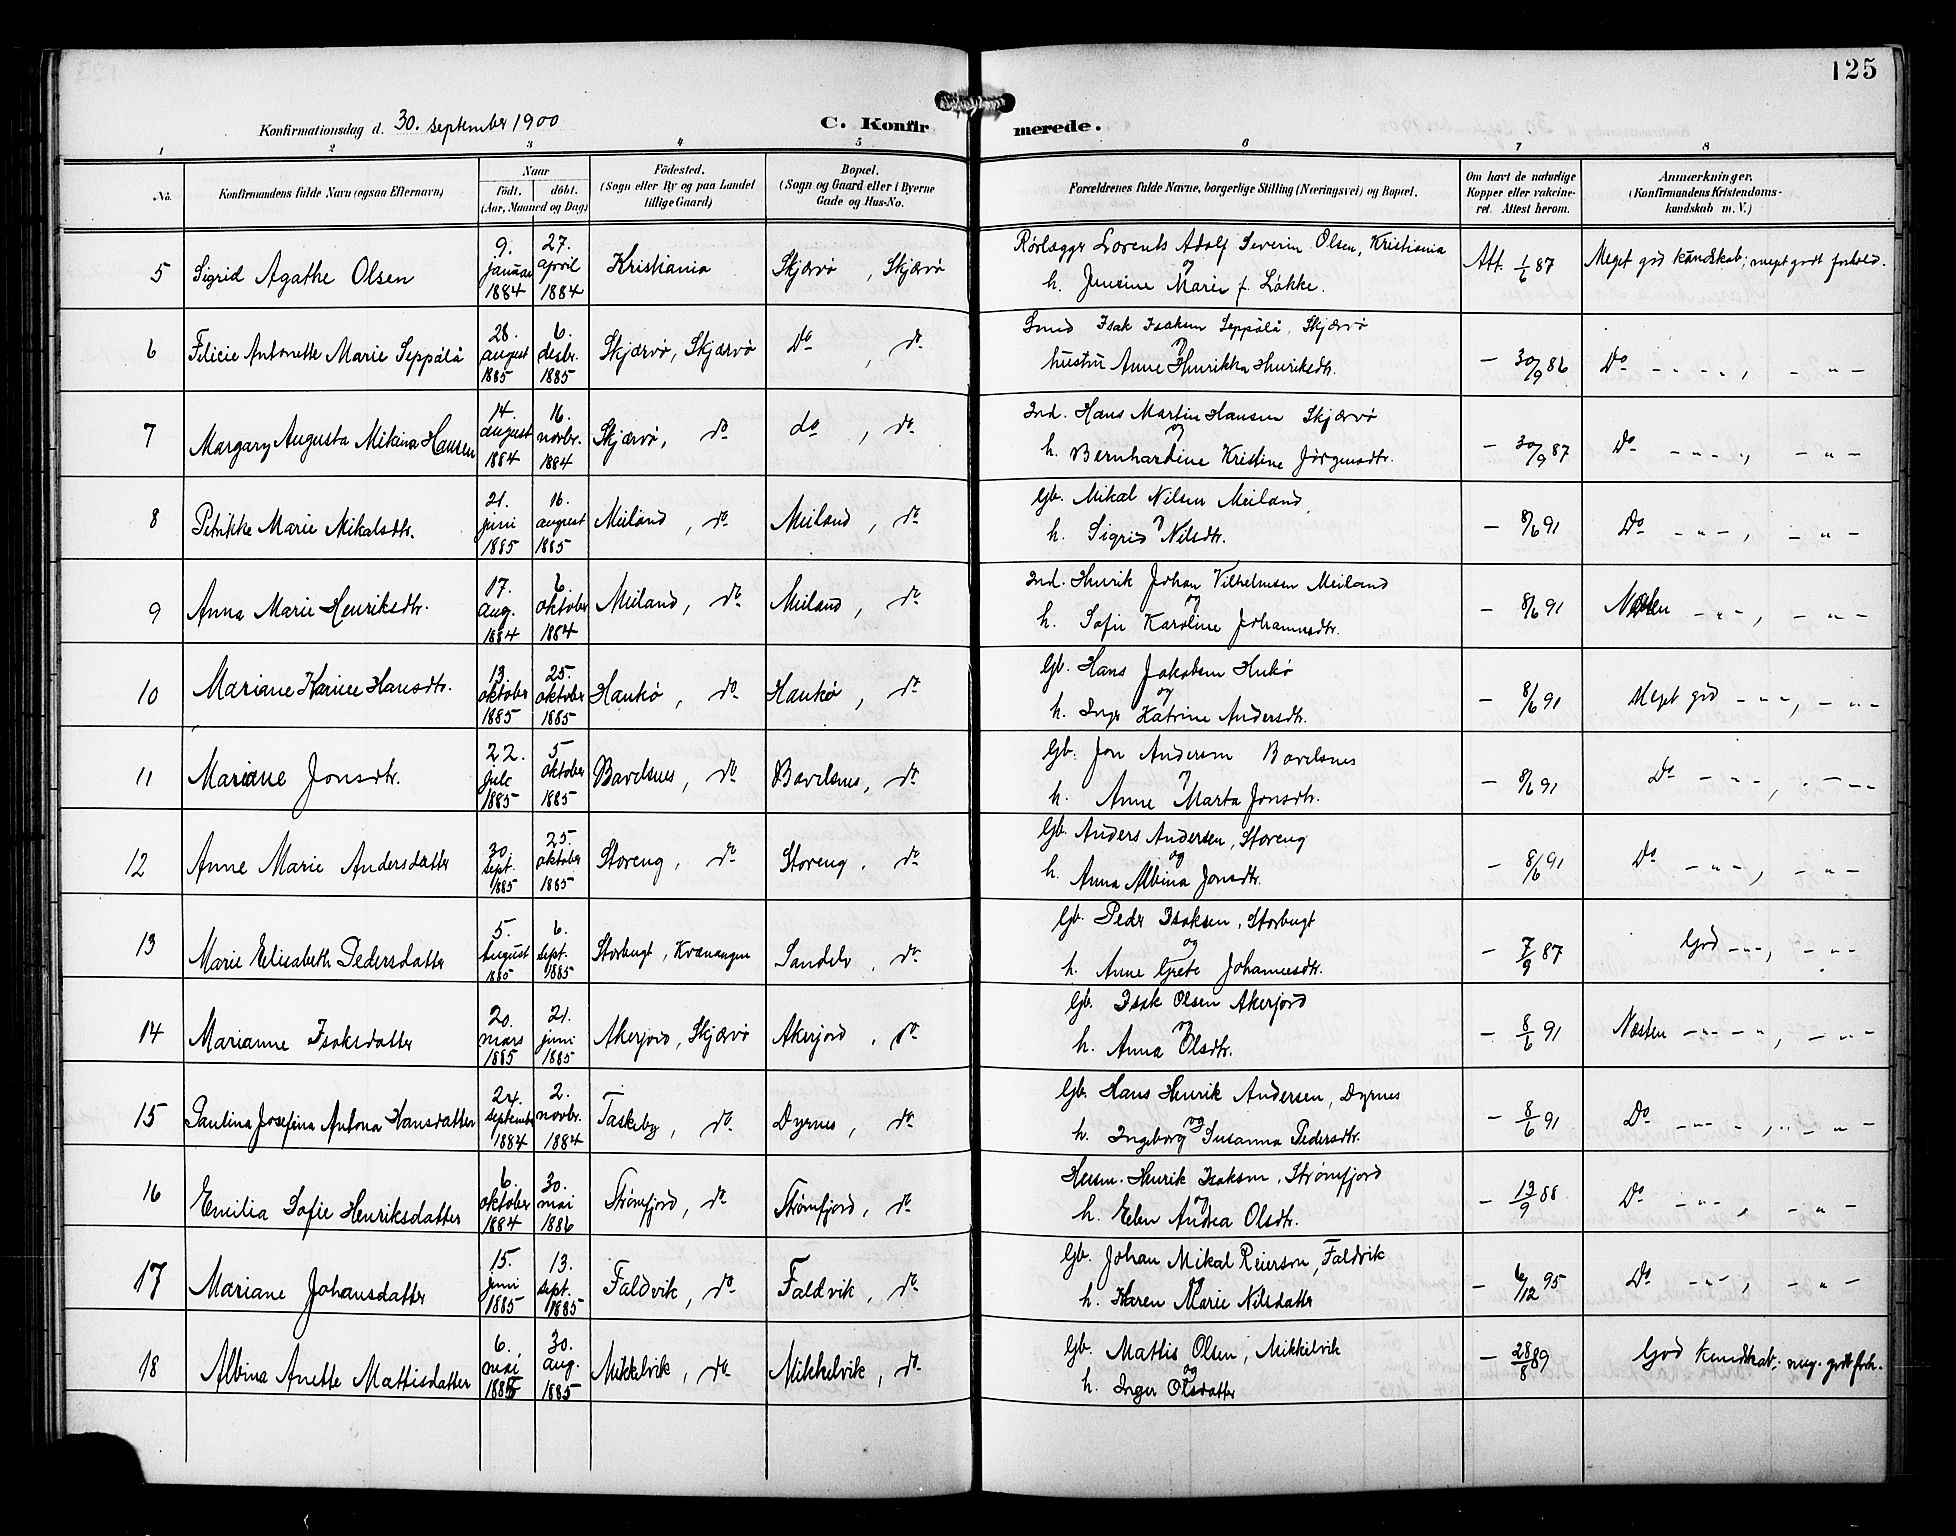 125
Konfirmationsdag d. 30. september 1900
C. Konfirmerede.
1 2 3 4 5 6 7 8
No.
Konfirmandens fulde Navn (ogsaa Efternavn)
Naar
født. døbt.
(Aar, Maaned og Dag)
Fødested.
(Sogn eller By og paa Landet
tillige Gaard)
Bopæl.
(Sogn og Gaard eller i Byerne
Gade og Hus-No.
Forældrenes fulde Navne, borgerlige Stilling (Næringsvei) og Bopæl.
Om havt de naturlige
Kopper eller vakcine-
ret. Attest herom.
Anmærkninger.
(Konfirmandens Kristendoms-
kundskab m. V.)
5 Sigrid Agathe Olsen 9. januar 1884 27. april 1884 Kristiania Skjærvø, Skjærvø
Rørlæggr Lorents Adolf Severin Olsen, Kristiania
og
h. Jensine Marie f. Løkke.
Att. 1/6 87 Meget god kundskab; meget godt forhold.
6 Filicie Antonette Marie Seppälä 28. august 1885 6. desbr. 1885 Skjærvø, Skjærvø Do, do
Smed Isak Isaksen Seppälä, Skjærvø
og
hustru Anne Henrikka Henriksdtr.
– 30/9 86 Do – – – –, – „ –
7 Margary Augusta Mikina Hansen 14. august 1884 16. novbr. 1884 Skjærvø, do do, do
Ind. Hans Martin Hansen Skjærvø
og
h. Bernhardine Kristine Jørgensdtr.
– 30/9 87 Do – „ – „, – „ –
8 Petrikke Marie Mikalsdtr. 21. juni 1885 16. august 1885 Meiland, do Meiland, do
Gb. Mikal Nilsen Meiland,
og
h. Sigrid Nilsdtr.
– 8/6 91 Do – „ –, – „ –
9 Anna Marie Henriksdtr. 17. aug. 1884 6 oktober 1884 Meiland, do Meiland, do
Ind. Henrik Johan Vilhelmsen Meiland
og
h. Sofie Karoline Johannesdtr.
– 8/6 91 Næsten – „ –, – „ –
10 Mariane Karine Hansdtr. 13. oktober 1885 25. oktober 1885 Haukø, do Haukø, do
Gb. Hans Jakobsen Hukø
og
h. Inger Katrine Andersdtr.
– 8/6 91 Meget god – „ –, – „ –
11 Mariane Jonsdtr. 22. juli 1885 5 oktober 1885 Bavelsnes, do Bavelsnes, do
Gb. Jon Andersen Bavelsnes
og
h. Anne Marta Jonsdtr.
– 8/6 91 Do – „ –, – „ –
12 Anne Marie Andersdatter 30. sept. 1885 25. oktober 1885 Storeng, do Storeng, do
Gb. Anders Andersen, Storeng
og
h. Anna Albina Jonsdtr.
– 8/6 91 Do – „ –, – „ –
13 Marie Elisabeth Pedersdatter 5. august 1885 6. sept. 1885 Storbugt, Kvænangen Sandelv, do
Gb. Peder Isaksen, Storbugt
og
h. Anne Grete Johannesdtr.
– 7/9 87 God – „ –, – „ –
14 Marianne Isaksdatter 20. mars 1885 21. juni 1885 Akerjord, Skjærvø Akerjord, do
Gb. Isak Olsen Akerjord
og
h. Anna Olsdtr.
– 8/6 91 Næsten – „ – „ –, – „ –
15 Paulina Josefina Antona Hansdatter 24. september 1884 2. novbr. 1884 Taskeby, do Dyrnes, do
Gb. Hans Henrik Andersen, Dyrnes
og
h. Ingeborg Susanna Pedersdtr.
– 8/6 91 Do – „ – –, „ – „ –
16 Emilia Sofie Henriksdatter 6. oktober 1884 30. mai 1886 Strømfjord, do Strømfjord, do
Husm. Henrik Isaksen, Strømfjord
og
h. Elen Andrea Olsdtr.
– 13/9 88 Do – „ –, – „ –
17 Mariane Johansdatter 15. juni 1885 13. sept. 1885 Faldvik, do Faldvik, do
Gb. Johan Mikal Reiersen, Faldvik
og
h. Karen Marie Nilsdatter
– 6/12 95 Do – „ –, – „ –
18 Albina Anette Mattisdatter 6. mai 1885 30. aug. 1885 Mikkelvik, do Mikkelvik, do
Gb. Mattis Olsen, Mikkelvik
og
h. Inger Olsdatter
– 28/8 89 God kundskab; meg. godt forh.